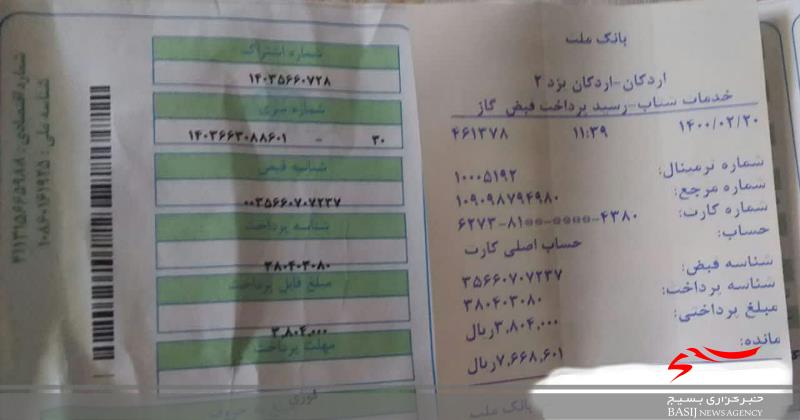 بانک ملت
اردکان-اردکان یزد ۲
خدمات شتاب-رسید پرداخت قبض گاز
۱۴۰۰/۰۲/۲۰ ۱۱:۳۹ ۴۶۱۳۷۸
شماره ترمینال: ۱۰۰۰۵۱۹۲
شماره مرجع: ۱۰۹۰۹۸۷۹۴۹۸۰
شماره کارت: ۶۲۷۳-۸۱**-****-۴۳۸۰
حساب: حساب اصلی کارت
شناسه قبض: ۳۵۶۶۰۷۰۷۲۳۷
شناسه پرداخت: ۳۸۰۴۰۳۰۸۰
مبلغ پرداختی: ۳,۸۰۴,۰۰۰ریال
مانده: ۷,۶۶۸,۶۰۱ریال
بانک ملت
شماره اشتراک
۱۴۰۳۵۶۶۰۷۲۸
شماره سری
۳۰ - ۱۴۰۳۶۶۳۰۸۸۶۰۱
شناسه قبض
۰۰۳۵۶۶۰۷۰۷۲۳۷
شناسه پرداخت
۳۸۰۴۰۳۰۸۰
مبلغ قابل پرداخت
۳,۸۰۴,۰۰۰
مهلت پرداخت
فوری
شماره اقتصادی: ۴۱۱۳۱۵۶۶۵۹۸۸
شناسه ملی: ۱۰۸۶۰۱۶۱۹۲۵
بسیج
خبرگزاری بسیج
BASIJ NEWS AGENCY